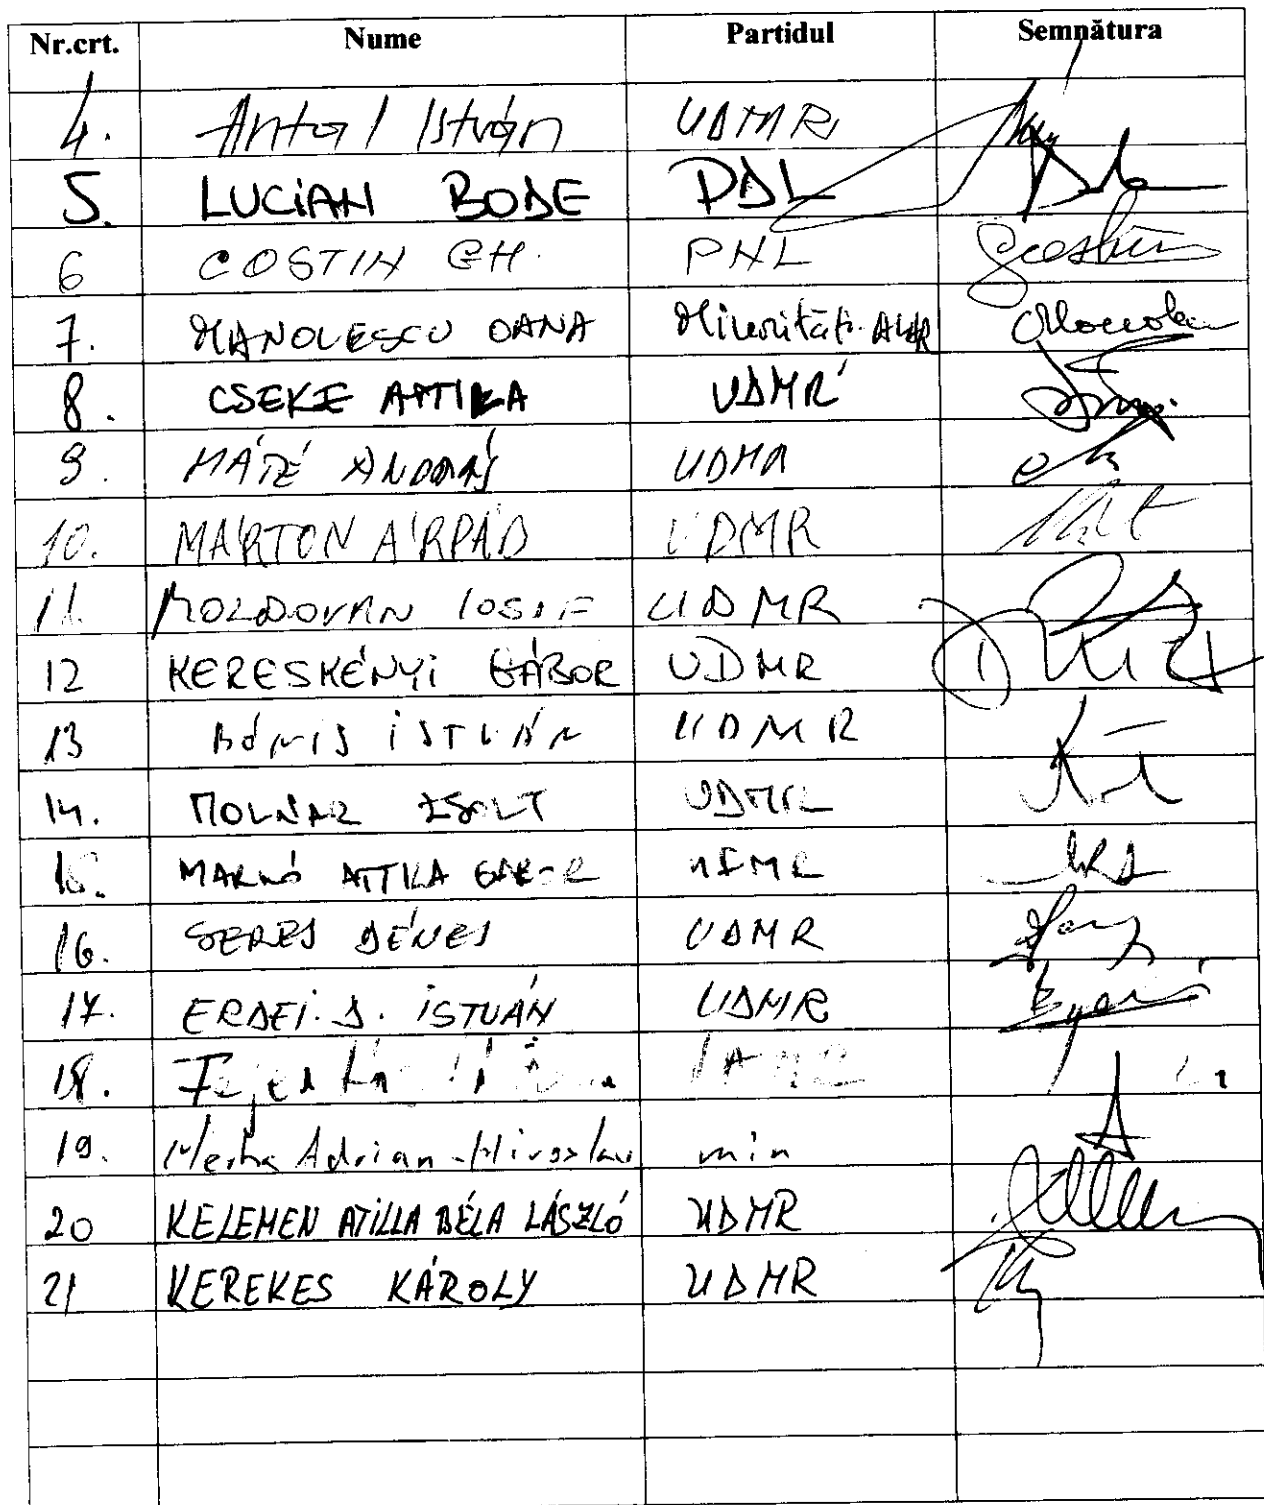 Nr.crt. Nume Partidul Semnătura
4. Antal István UDMR
5. LUCIAN BODE PDL
6 COSTIN GH. PNL
7. MANOLESCU OANA Minorităţi
8. CSEKE ATTILA UDMR
9. MÁTÉ ANDRÁS UDMR
10. MÁRTON ÁRPÁD UDMR
11. MOLDOVAN IOSIF UDMR
12 KERESKÉNYI GÁBOR UDMR
13 ISTVÁN UDMR
14. MOLNAR ZSOLT UDMR
15. ATTILA GABOR UDMR
16. SERES DÉNES UDMR
17. ERDEI. D. ISTVÁN UDMR
18.
19. Merka Adrian-Miroslav min
20 KELEMEN ATILLA BÉLA LÁSZLÓ UDMR
21 KEREKES KÁROLY UDMR